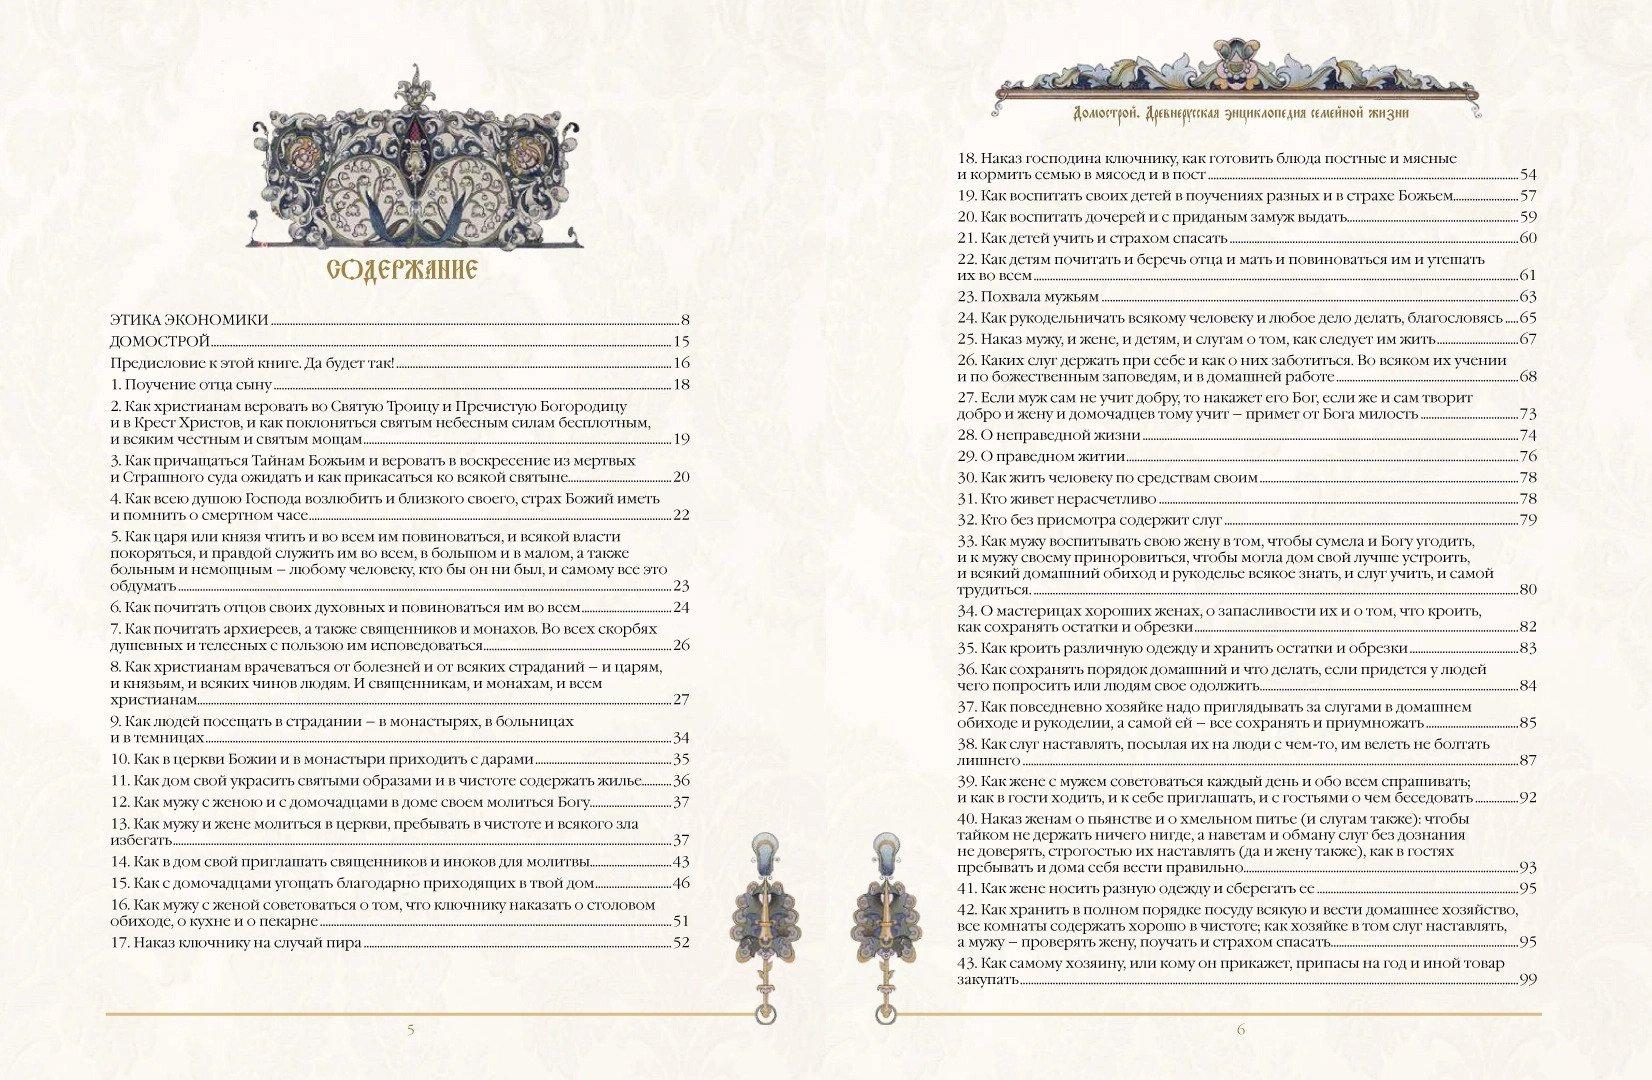 СОДЕРЖАНИЕ
ЭТИКА ЭКОНОМИКИ 8
ДОМОСТРОЙ 15
Предисловие к этой книге. Да будет так! 16
1. Поучение отца сыну 18
2. Как христианам веровать во Святую Троицу и Пречистую Богородицу
и в Крест Христов, и как поклоняться святым небесным силам бесплотным,
и всяким честным и святым мощам 19
3. Как причащаться Тайнам Божьим и веровать в воскресение из мертвых
и Страшного суда ожидать и как прикасаться ко всякой святыне 20
4. Как всею душою Господа возлюбить и близкого своего, страх Божий иметь
и помнить о смертном часе 22
5. Как царя или князя чтить и во всем им повиноваться, и всякой власти
покоряться, и правдой служить им во всем, в большом и в малом, а также
больным и немощным – любому человеку, кто бы он ни был, и самому все это
обдумать 23
6. Как почитать отцов своих духовных и повиноваться им во всем 24
7. Как почитать архиереев, а также священников и монахов. Во всех скорбях
душевных и телесных с пользою им исповедоваться 26
8. Как христианам врачеваться от болезней и от всяких страданий – и царям,
и князьям, и всяких чинов людям. И священникам, и монахам, и всем
христианам 27
9. Как людей посещать в страдании – в монастырях, в больницах
и в темницах 34
10. Как в церкви Божии и в монастыри приходить с дарами 35
11. Как дом свой украсить святыми образами и в чистоте содержать жилье 36
12. Как мужу с женою и с домочадцами в доме своем молиться Богу 37
13. Как мужу и жене молиться в церкви, пребывать в чистоте и всякого зла
избегать 37
14. Как в дом свой приглашать священников и иноков для молитвы 43
15. Как с домочадцами угощать благодарно приходящих в твой дом 46
16. Как мужу с женой советоваться о том, что ключнику наказать о столовом
обиходе, о кухне и о пекарне 51
17. Наказ ключнику на случай пира 52
5
Домострой. Древнерусская энциклопедия семейной жизни
18. Наказ господина ключнику, как готовить блюда постные и мясные
и кормить семью в мясоед и в пост 54
19. Как воспитать своих детей в поучениях разных и в страхе Божьем 57
20. Как воспитать дочерей и с приданым замуж выдать 59
21. Как детей учить и страхом спасать 60
22. Как детям почитать и беречь отца и мать и повиноваться им и утешать
их во всем 61
23. Похвала мужьям 63
24. Как рукодельничать всякому человеку и любое дело делать, благословясь 65
25. Наказ мужу, и жене, и детям, и слугам о том, как следует им жить 67
26. Каких слуг держать при себе и как о них заботиться. Во всяком их учении
и по божественным заповедям, и в домашней работе 68
27. Если муж сам не учит добру, то накажет его Бог, если же и сам творит
добро и жену и домочадцев тому учит – примет от Бога милость 73
28. О неправедной жизни 74
29. О праведном житии 76
30. Как жить человеку по средствам своим 78
31. Кто живет нерасчетливо 78
32. Кто без присмотра содержит слуг 79
33. Как мужу воспитывать свою жену в том, чтобы сумела и Богу угодить,
и к мужу своему приноровиться, чтобы могла дом свой лучше устроить,
и всякий домашний обиход и рукоделье всякое знать, и слуг учить, и самой
трудиться. 80
34. О мастерицах хороших женах, о запасливости их и о том, что кроить,
как сохранять остатки и обрезки 82
35. Как кроить различную одежду и хранить остатки и обрезки 83
36. Как сохранять порядок домашний и что делать, если придется у людей
чего попросить или людям свое одолжить 84
37. Как повседневно хозяйке надо приглядывать за слугами в домашнем
обиходе и рукоделии, а самой ей – все сохранять и приумножать 85
38. Как слуг наставлять, посылая их на люди с чем-то, им велеть не болтать
лишнего 87
39. Как жене с мужем советоваться каждый день и обо всем спрашивать;
и как в гости ходить, и к себе приглашать, и с гостьями о чем беседовать 92
40. Наказ женам о пьянстве и о хмельном питье (и слугам также): чтобы
тайком не держать ничего нигде, а наветам и обману слуг без дознания
не доверять, строгостью их наставлять (да и жену также), как в гостях
пребывать и дома себя вести правильно 93
41. Как жене носить разную одежду и сберегать ее 95
42. Как хранить в полном порядке посуду всякую и вести домашнее хозяйство,
все комнаты содержать хорошо в чистоте; как хозяйке в том слуг наставлять,
а мужу – проверять жену, поучать и страхом спасать 95
43. Как самому хозяину, или кому он прикажет, припасы на год и иной товар
закупать 99
6